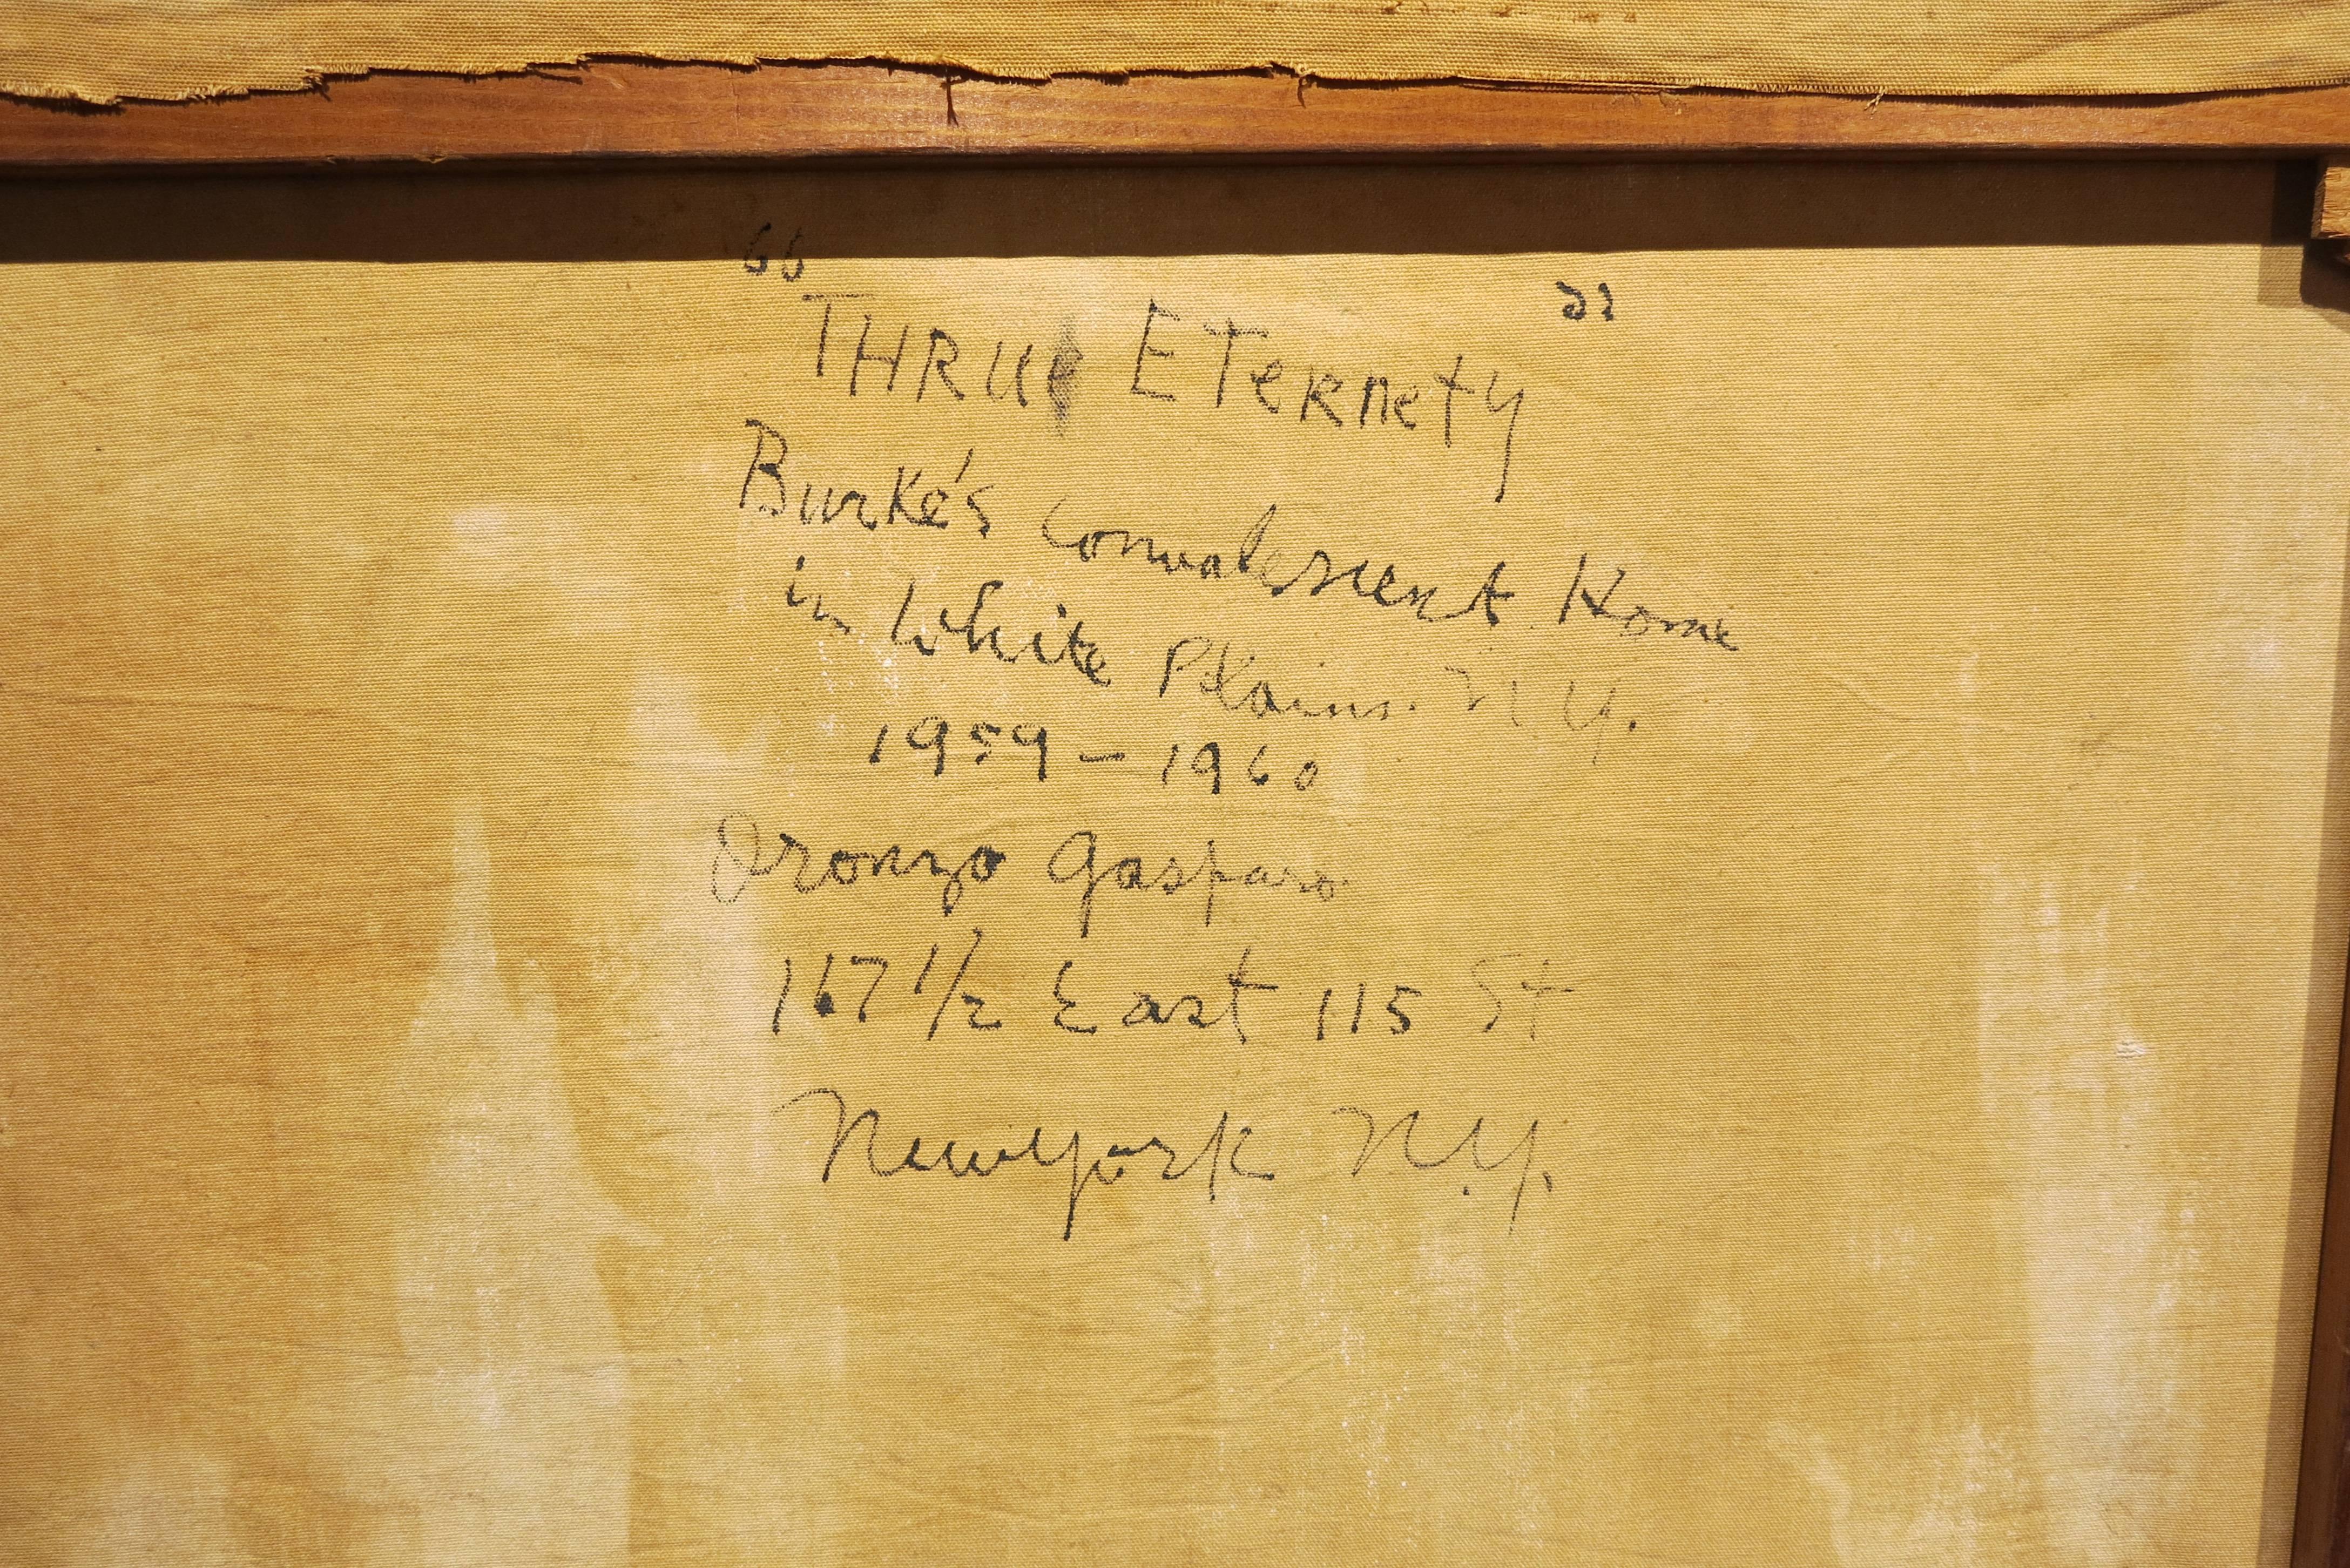 "THRU ETerneTy"
Burke's Convalescent Home
in White Plains. N Y.
1959 - 1960
Oronzo Gasparo
167 1/2 East 115 St
New York N.Y.